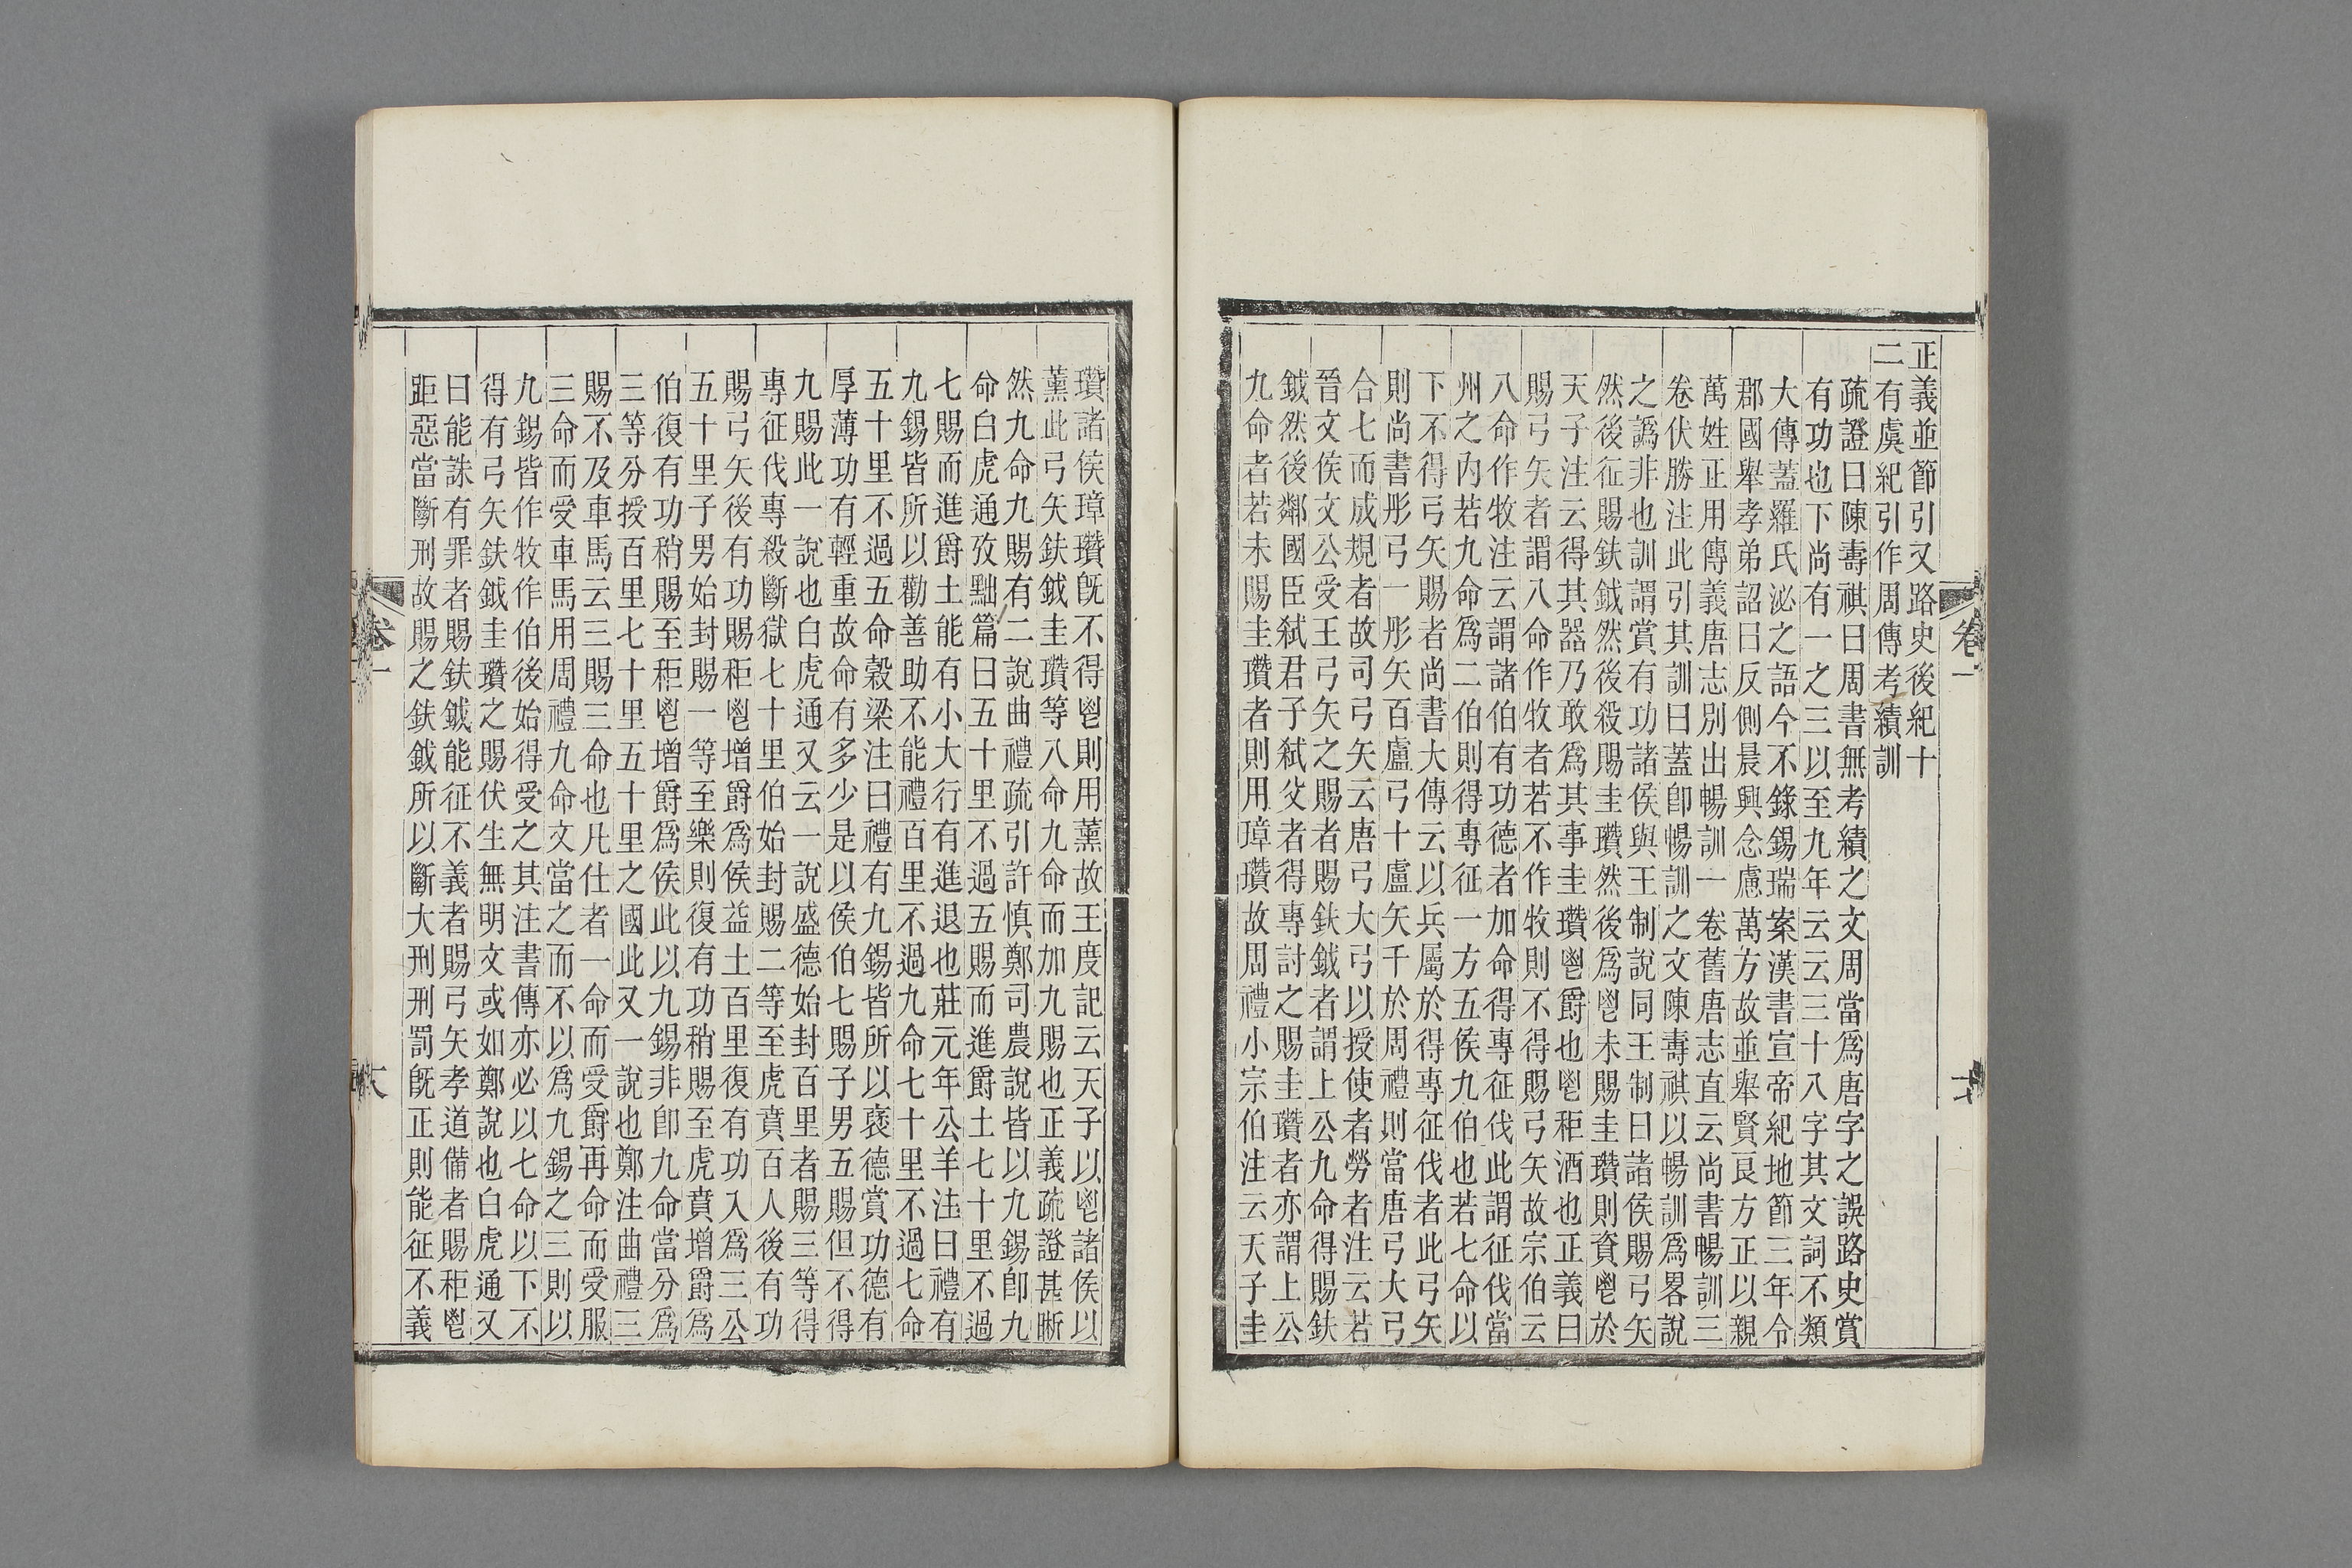 正義並節引又路史後紀十
二有虞紀引作周傳考績訓
疏證曰陳壽祺曰周書無考績之文周當爲唐字之誤路史賞
有功也下尚有一之三以至九年云云三十八字其文詞不類
大傳蓋羅氏泌之語今不錄錫瑞案漢書宣帝紀地節三年令
郡國舉孝弟詔曰反側晨興念慮萬方故並舉賢良方正以親
萬姓正用傳義唐志別出暢訓一卷舊唐志直云尚書暢訓三
卷伏勝注此引其訓曰蓋卽暢訓之文陳壽祺以暢訓爲畧說
之譌非也訓謂賞有功諸侯與王制說同王制曰諸侯賜弓矢
然後征賜鈇鉞然後殺賜圭瓚然後爲鬯未賜圭瓚則資鬯於
天子注云得其器乃敢爲其事圭瓚鬯爵也鬯秬酒也正義曰
賜弓矢者謂八命作牧者若不作牧則不得賜弓矢故宗伯云
八命作牧注云謂諸伯有功德者加命得專征伐此謂征伐當
州之內若九命爲二伯則得專征一方五侯九伯也若七命以
下不得弓矢賜者尚書大傳云以兵屬於得專征伐者此弓矢
則尚書彤弓一彤矢百盧弓十盧矢千於周禮則當唐弓大弓
合七而成規者故司弓矢云唐弓大弓以授使者勞者注云若
晉文侯文公受王弓矢之賜者賜鈇鉞者謂上公九命得賜鈇
鉞然後鄰國臣弒君子弒父者得專討之賜圭瓚者亦謂上公
九命者若未賜圭瓚者則用璋瓚故周禮小宗伯注云天子圭
瓚諸侯璋瓚旣不得鬯則用薰故王度記云天子以鬯諸侯以
薰此弓矢鈇鉞圭瓚等八命九命而加九賜也正義疏證甚晰
然九命九賜有二說曲禮疏引許慎鄭司農說皆以九錫卽九
命白虎通攷黜篇曰五十里不過五賜而進爵土七十里不過
七賜而進爵土能有小大行有進退也莊元年公羊注曰禮有
九錫皆所以勸善助不能禮百里不過九命七十里不過七命
五十里不過五命穀梁注曰禮有九錫皆所以褒德賞功德有
厚薄功有輕重故命有多少是以侯伯七賜子男五賜但不得
九賜此一說也白虎通又云一說盛德始封百里者賜三等得
專征伐專殺斷獄七十里伯始封賜二等至虎賁百人後有功
賜弓矢後有功賜秬鬯增爵爲侯益土百里復有功入爲三公
五十里子男始封賜一等至樂則復有功稍賜至虎賁增爵爲
伯復有功稍賜至秬鬯增爵爲侯此以九錫非卽九命當分爲
三等分授百里七十里五十里之國此又一說也鄭注曲禮三
賜不及車馬云三賜三命也凡仕者一命而受爵再命而受服
三命而受車馬用周禮九命文當之而不以爲九錫之三則以
九錫皆作牧作伯後始得受之其注書傳亦必以七命以下不
得有弓矢鈇鉞圭瓚之賜伏生無明文或如鄭說也白虎通又
曰能誅有罪者賜鈇鉞能征不義者賜弓矢孝道備者賜秬鬯
距惡當斷刑故賜之鈇鉞所以斷大刑刑罰旣正則能征不義
卷一
卷一